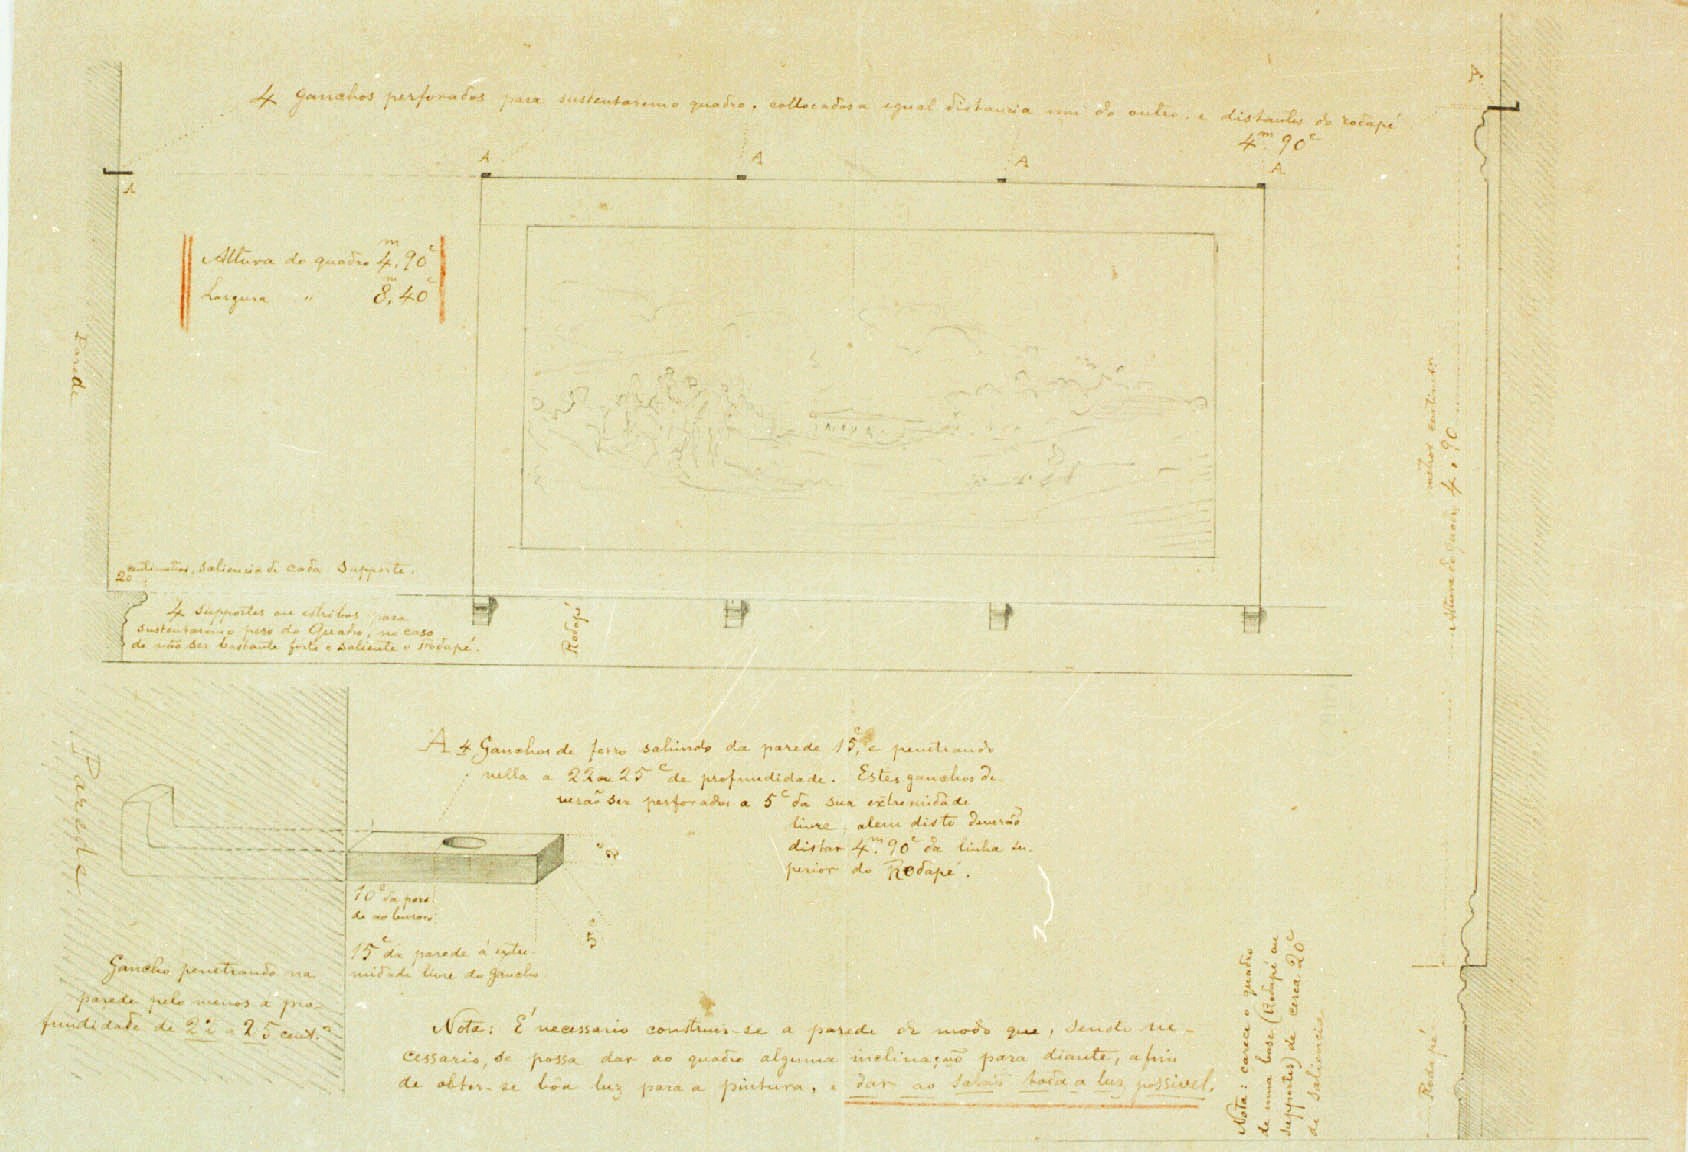 4 ganchos perforados para sustentarem o quadro. collocados a egual distancia um do outro. e distantes do rodapé
4m. 90c
A
A
A
A
A
A
Altura do quadro 4m, 90c
Largura " 8m, 40c
Parede
20 centimetros, saliencia de cada supporte.
4 supportes ou estribos para
sustentarem o peso do Quadro, no caso
de não ser bastante forte e saliente o rodapé.
Rodapé
A 4 Ganchos de ferro sahindo da parede 15c, e penetrando
nella a 22 a 25c de profundidade. Estes ganchos de-
verão ser perforados a 5c da sua extremidade
livre, alem disto deverão
distar 4m. 90c da linha su-
perior do Rodapé.
Parede
10c da pare
de ao
15c da parede á extre-
midade livre do gancho
5c
Gancho penetrando na
parede pelo menos a pro-
fundidade de 22 a 25 cent.os
Nota: É necessario construir-se a parede de modo que, sendo ne-
cessario, se possa dar ao quadro alguma inclinação para diante, afim
de obter-se bôa luz para a pintura, e dar ao salão toda a luz possivel.
Nota: carece o quadro
de uma base (Rodapé ou
supportes) de cerca 20c
de saliencia
Altura do quadro 4.90
Rodapé